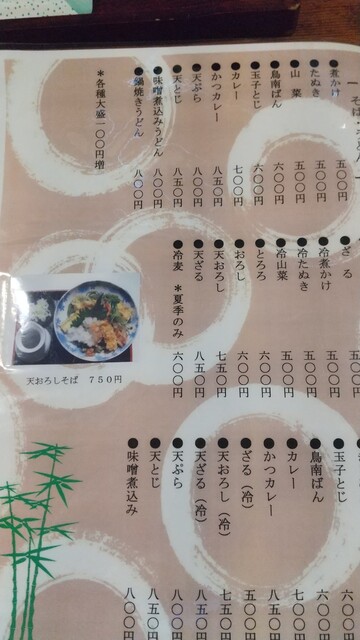 ●煮かけ 五〇〇円
●たぬき 五〇〇円
●山 菜 五〇〇円
●鳥南ばん 六〇〇円
●玉子とじ 六〇〇円
●カレー 七〇〇円
●かつカレー 八五〇円
●天ぷら 八〇〇円
●天とじ 八五〇円
●味噌煮込みうどん 八〇〇円
●鍋焼きうどん 八〇〇円
＊各種大盛一〇〇円増
●ざ る 五〇〇円
●冷煮かけ 五〇〇円
●冷たぬき 五〇〇円
●冷山菜 五〇〇円
●とろろ 六〇〇円
●おろし 六〇〇円
●天おろし 七五〇円
●天ざる 八五〇円
●冷麦 ＊夏季のみ 六〇〇円
天おろしそば 750円
●玉子とじ 六〇〇
●鳥南ばん 六〇〇円
●カレー 七〇〇円
●かつカレー 八五〇円
●ざる（冷） 五〇〇円
●天おろし（冷） 七五〇円
●天ざる（冷） 八五〇円
●天ぷら 八〇〇円
●天とじ 八五〇円
●味噌煮込み 八〇〇円